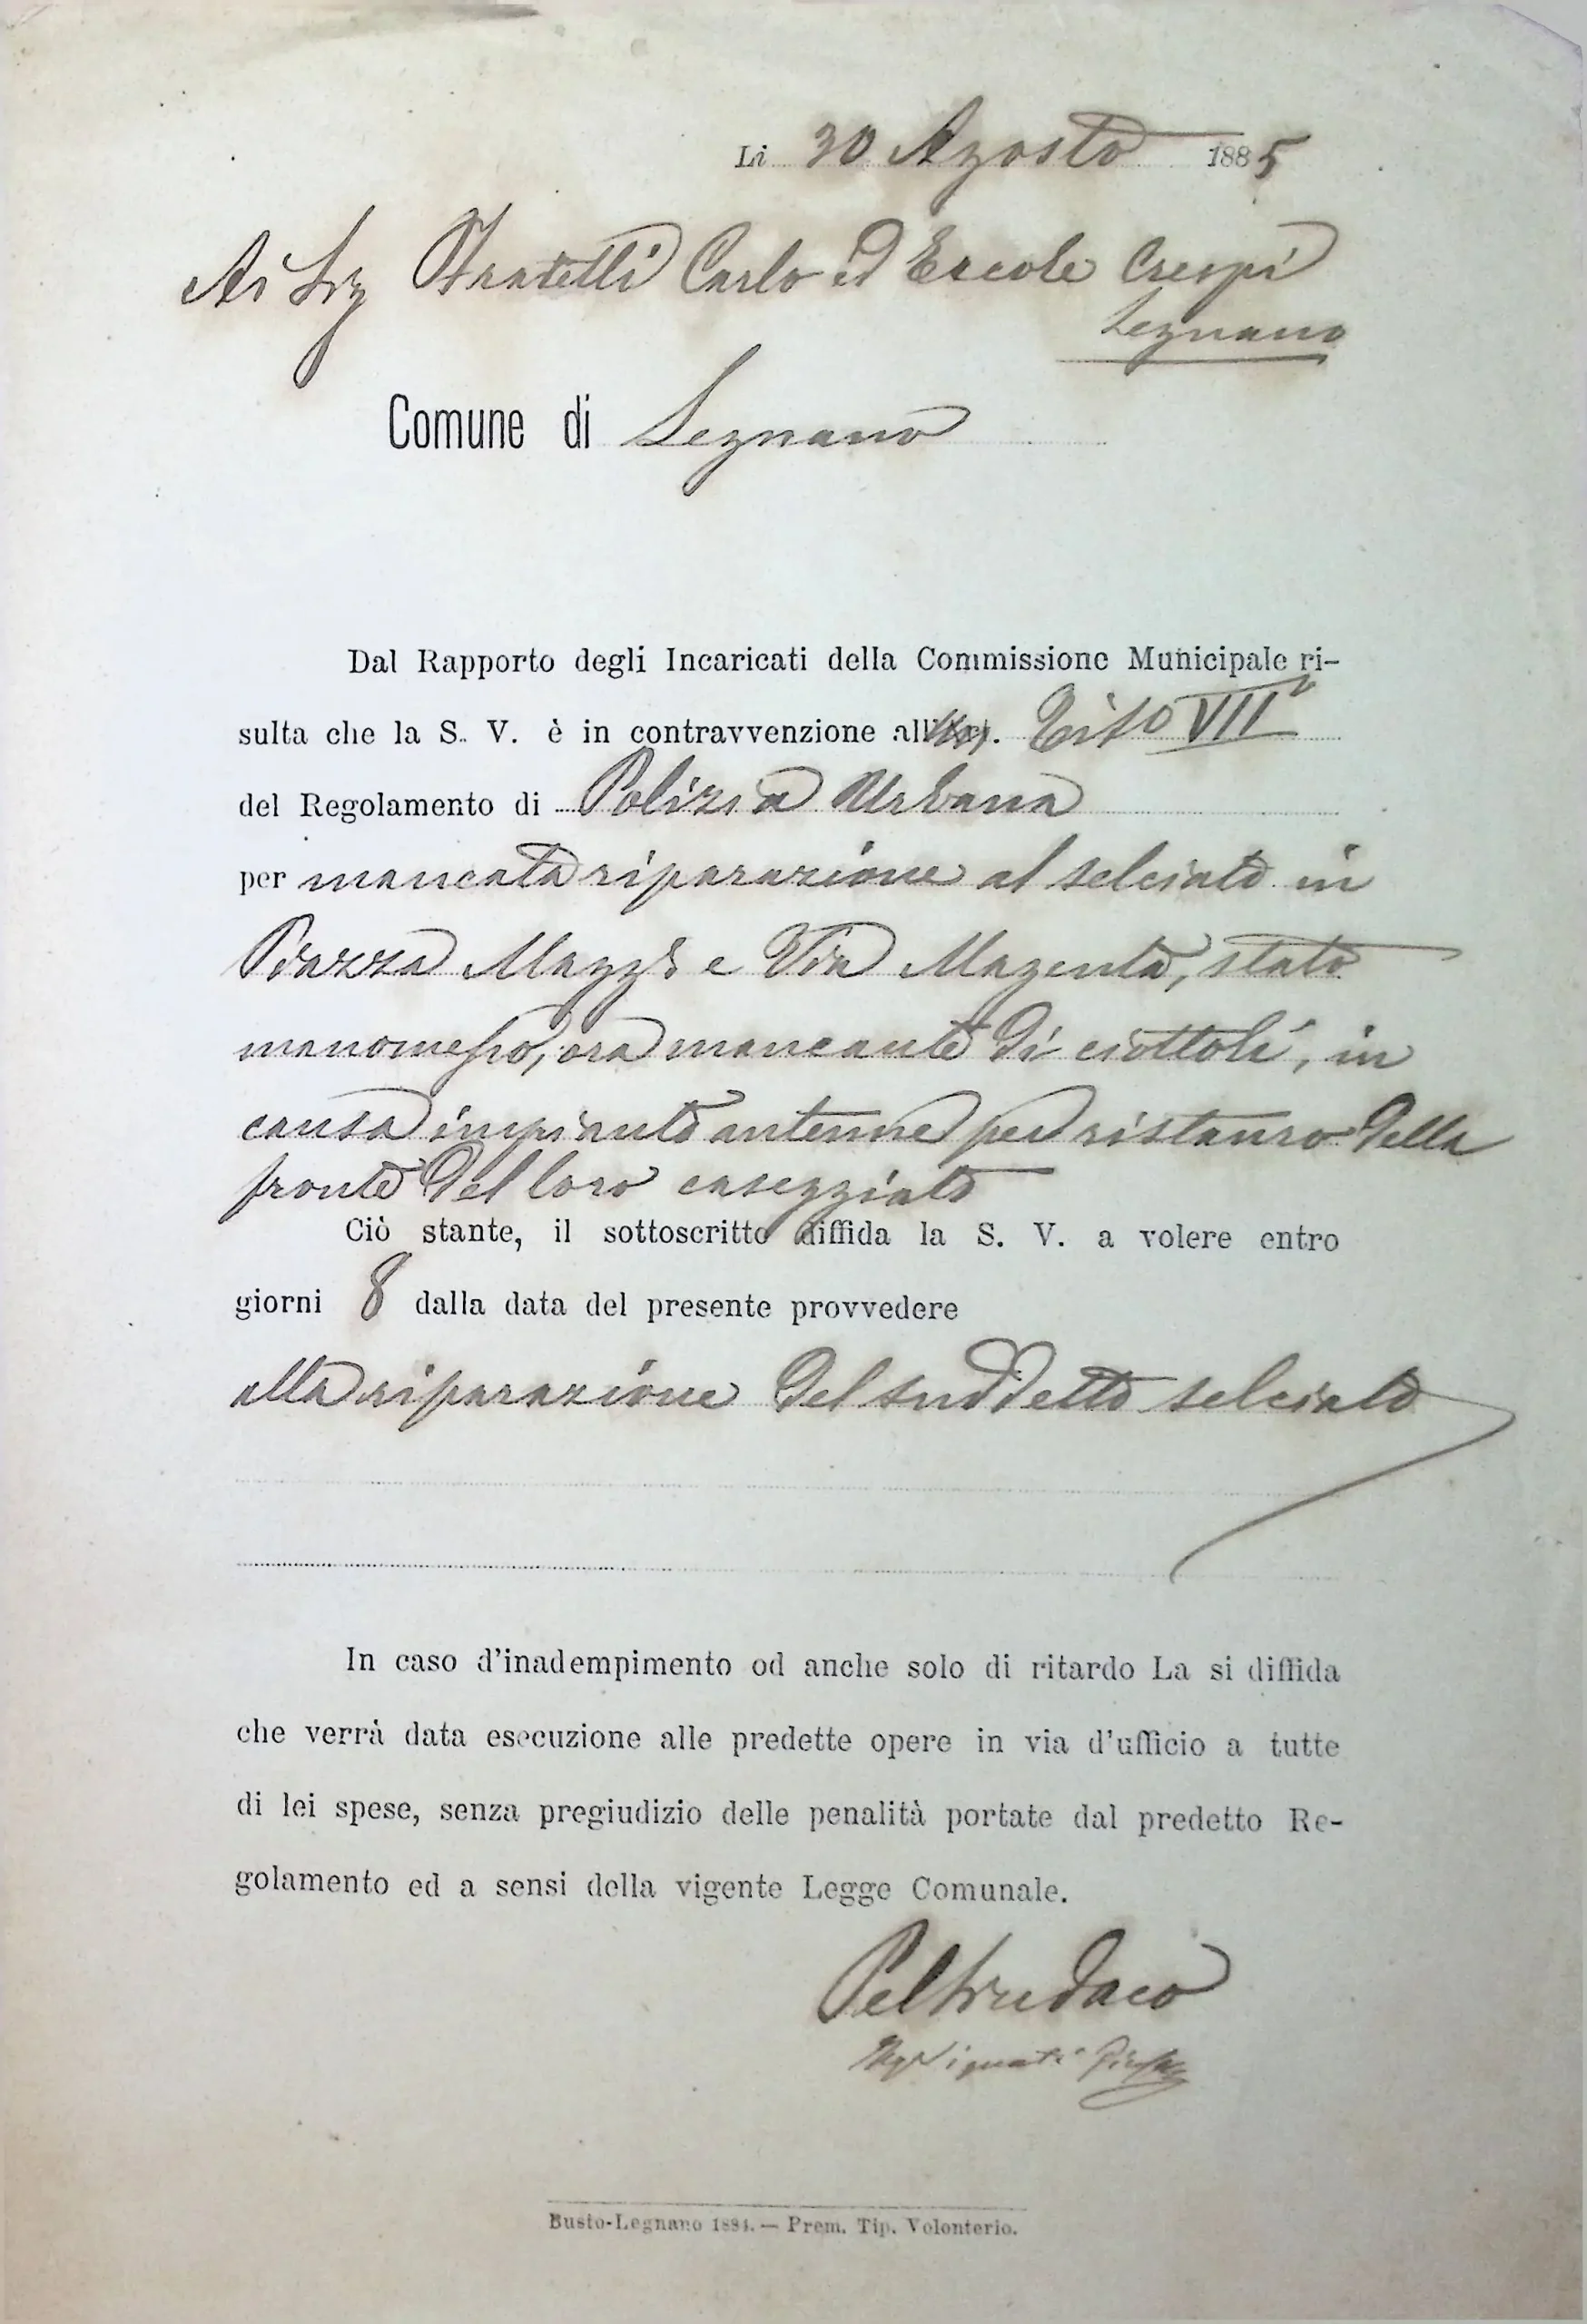 Li 30 Agosto 1885
Ai Sig Fratelli Carlo ed Ercole Crespi
Legnano
Comune di Legnano
Dal Rapporto degli Incaricati della Commissione Municipale ri-
sulta che la S. V. è in contravvenzione all'Art. Tito VII
del Regolamento di Polizia Urbana
per mancata riparazione al selciato in
Piazza e Via Magenta, stato
manomesso, ora mancante di ciottoli, in
causa impianto antenne per ristauro della
fronte del loro caseggiato
Ciò stante, il sottoscritto diffida la S. V. a volere entro
giorni 8 dalla data del presente provvedere
alla riparazione del suddetto selciato
In caso d'inadempimento od anche solo di ritardo La si diffida
che verrà data esecuzione alle predette opere in via d'ufficio a tutte
di lei spese, senza pregiudizio delle penalità portate dal predetto Re-
golamento ed a sensi della vigente Legge Comunale.
Pel Sindaco
Busto-Legnano 1884. — Prem. Tip. Volonterio.